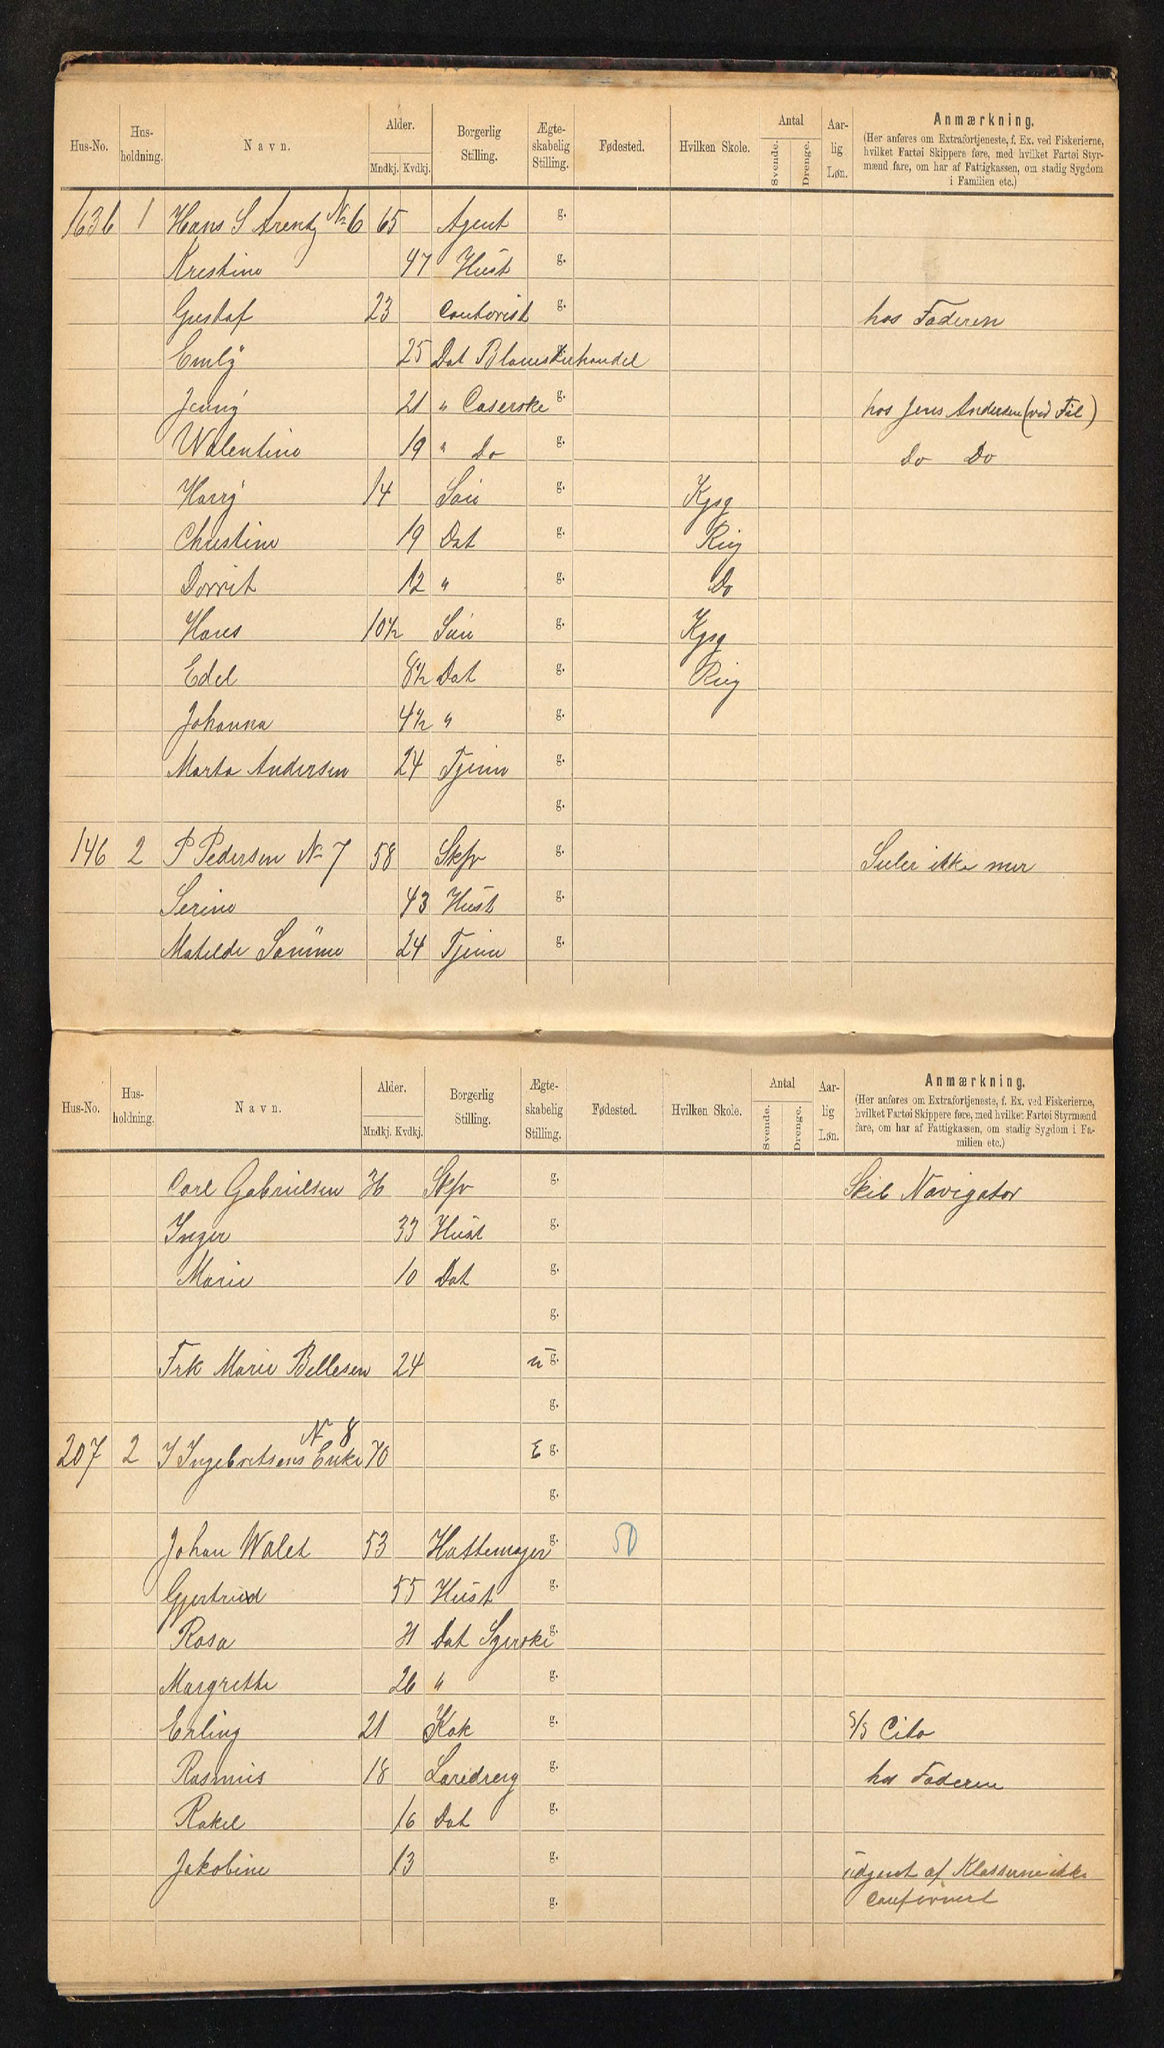 Hus-No. Hus-holdning. Navn. Alder. Mndkj. Kvdkj. Borgerlig Stilling. Ægte-skabelig Stilling. Fødested. Hvilken Skole. Antal Svende. Drenge. Aar-lig Løn. Anmærkning.
(Her anføres om Extrafortjeneste, f. Ex. ved Fiskerierne, hvilket Fartøi Skippere føre, med hvilket Fartøi Styrmænd fare, om har af Fattigkassen, om stadig Sygdom i Familien etc.)
1636 1 Hans S Arentz No 6 65 Agent g.
Kristine 47 Hust g.
Gustaf 23 Contorist g. hos Faderen
Emly 25 Dat Blomsterhandel g.
Jenny 21 " Caserske g. hos Jens Andersen (ved Fil)
Walentine 19 " Do g. Do Do
Harry 14 Søn g. Kgsg
Christine 19 Dat g. Ring
Dorrit 12 " g. Do
Hans 10½ Søn g. Kgsg
Edel 8½ Dat g. Ring
Johanna 4½ " g.
Marta Andersen 24 Tjenn g.
g.
146 2 P Pedersen No 7 58 Skfr g. Seiler ikke mer
Serine 43 Hust g.
Matilde Sømme 24 Tjenn g.
Hus-No. Hus-holdning. Navn. Alder. Mndkj. Kvdkj. Borgerlig Stilling. Ægte-skabelig Stilling. Fødested. Hvilken Skole. Antal Svende. Drenge. Aar-lig Løn. Anmærkning.
(Her anføres om Extrafortjeneste, f. Ex. ved Fiskerierne, hvilket Fartøi Skippere føre, med hvilket Fartøi Styrmænd fare, om har af Fattigkassen, om stadig Sygdom i Familien etc.)
Carl Gabrielsen 36 Skfr g. Skib Navigator
Inger 33 Hust g.
Marie 10 Dat g.
g.
Frk Marie Bellesen 24 u g.
g.
No 8
207 2 I Ingebretsens Enke 70 E g.
g.
Johan Walet 53 Hattemager g. 50
Gjertrud 55 Hust g.
Rosa 31 Dat Syerske g.
Margrethe 26 " g.
Erling 21 Kok g. S/S Cito
Rasmus 18 Løredreng g. hos Faderen
Rakel 16 Dat g.
Jakobine 13 g. udgaat af Klasserne ikke
g. Confirmert